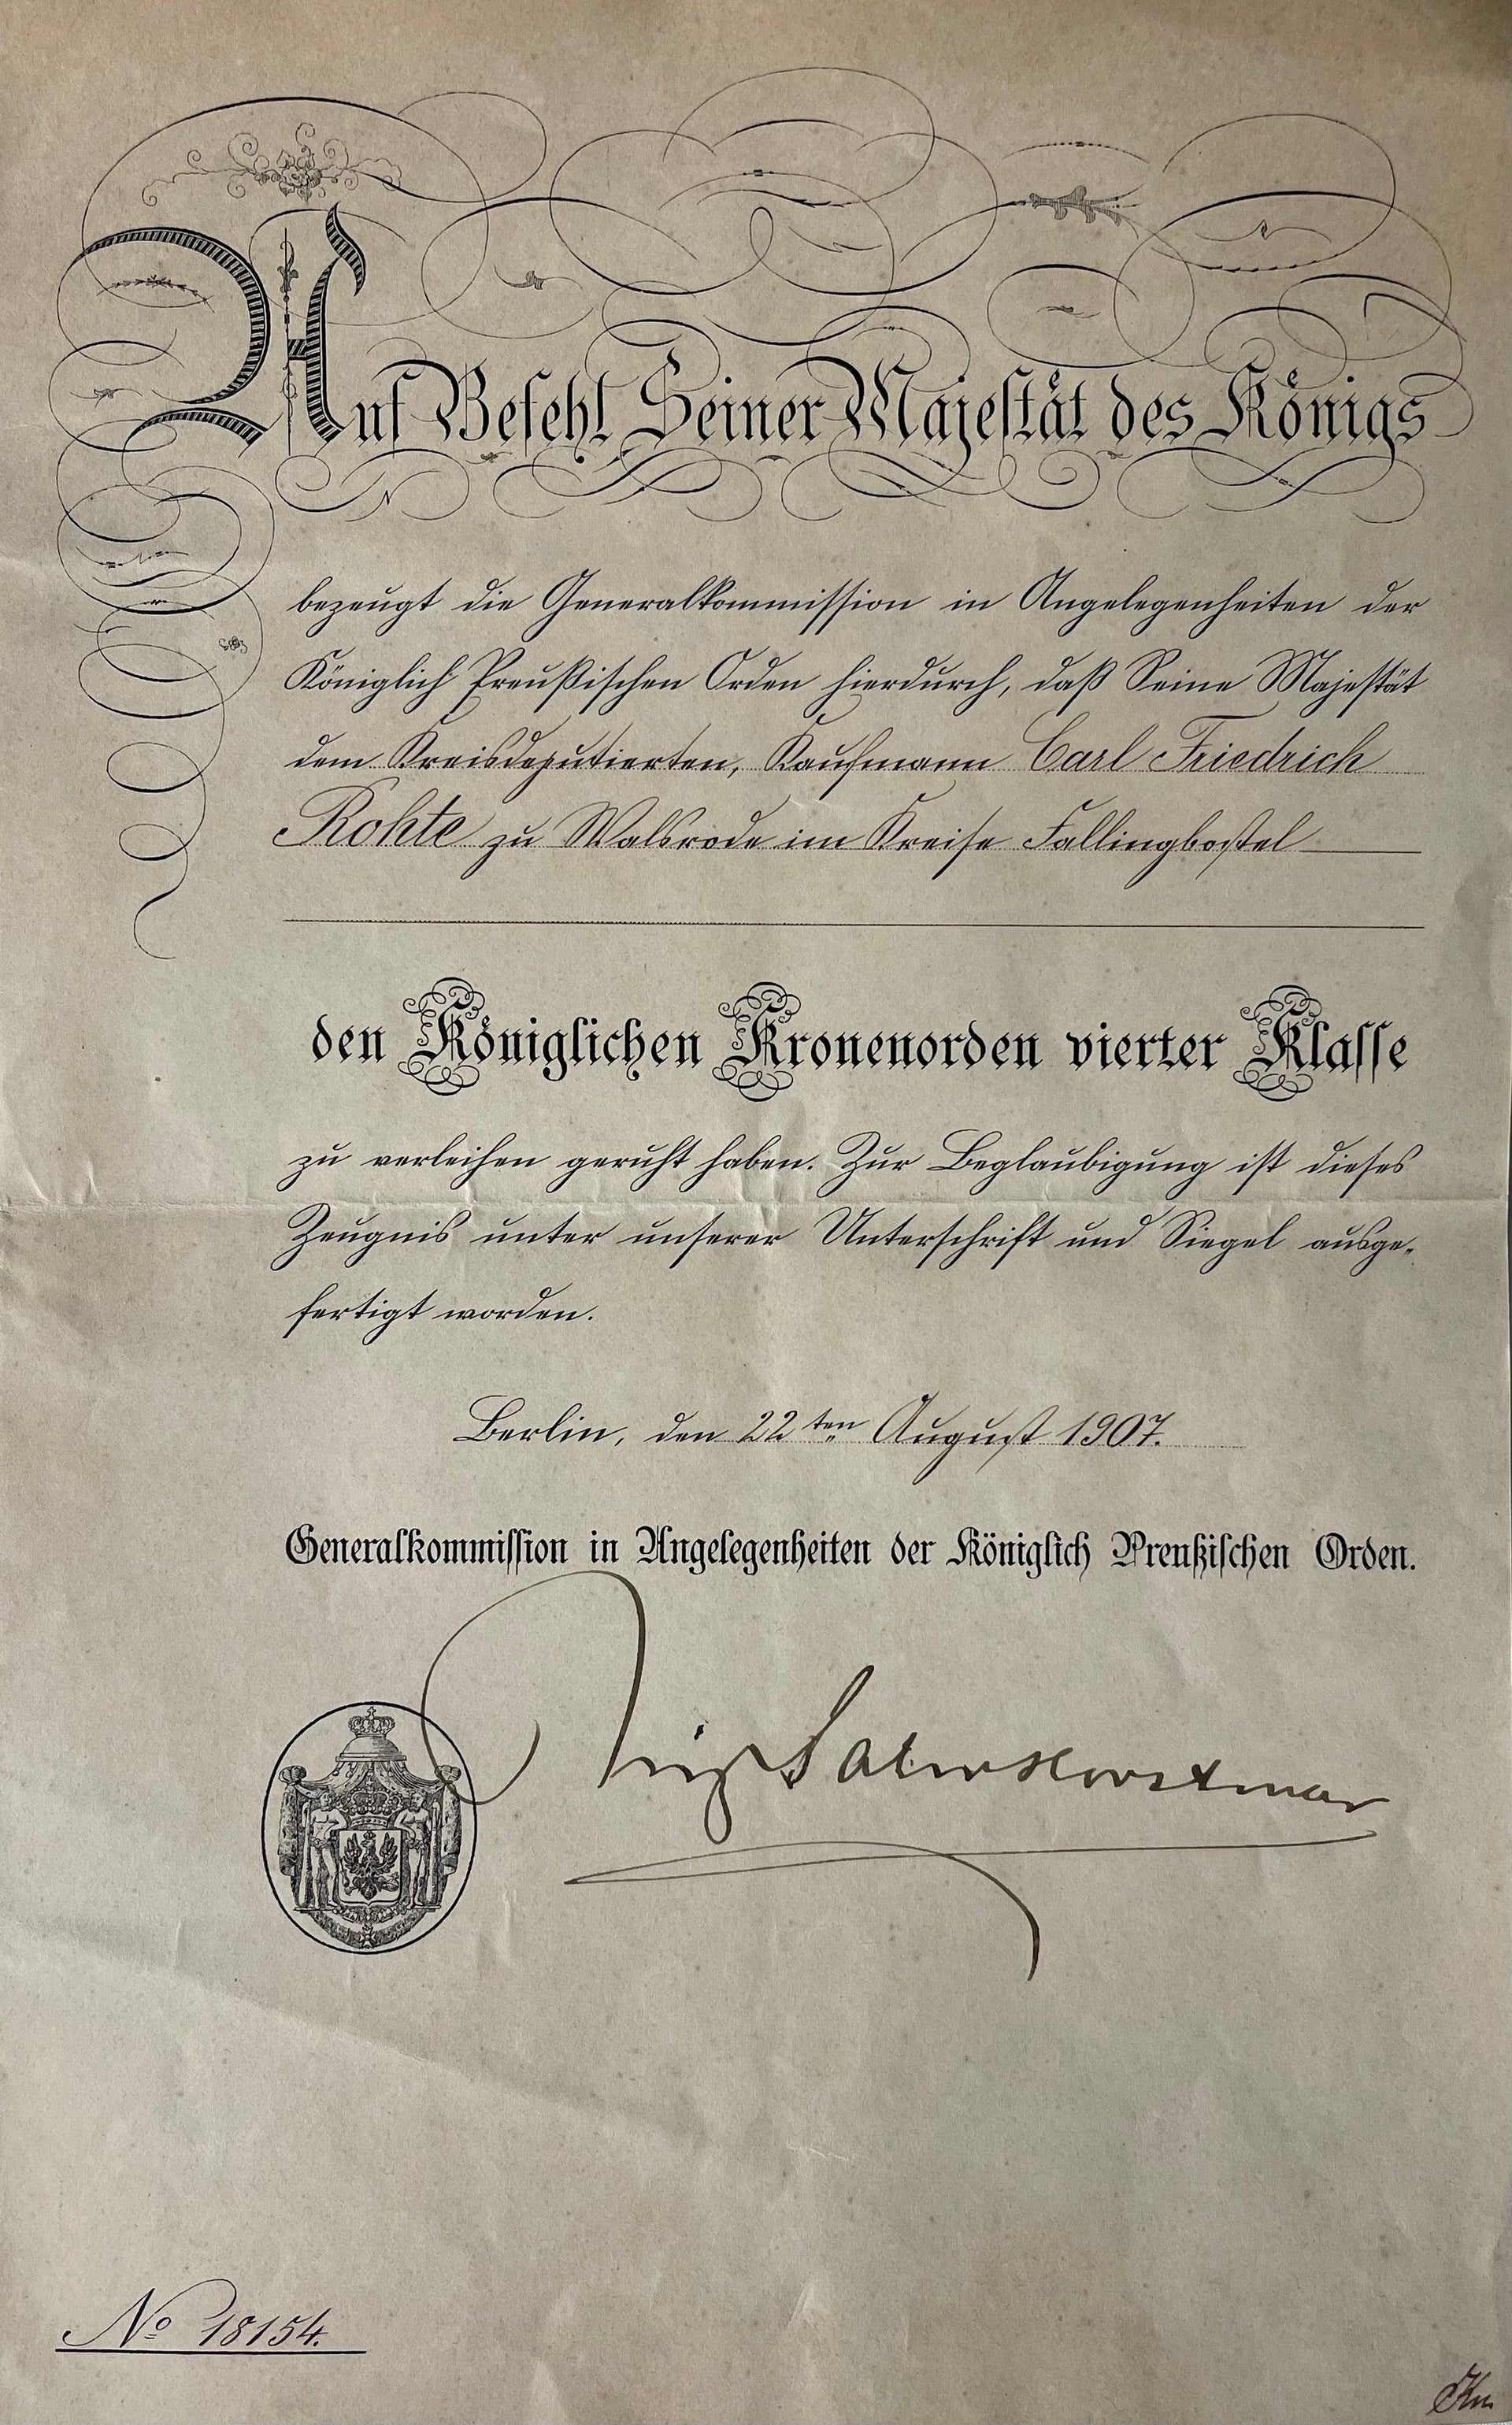 Auf Befehl Seiner Majestät des Königs
bezeugt die Generalkommission in Angelegenheiten der
Königlich Preußischen Orden hierdurch, daß Seine Majestät
dem Kreisdeputierten, Kaufmann Carl Friedrich
Rohte zu Walsrode im Kreise Fallingbostel
den Königlichen Kronenorden vierter Klasse
zu verleihen geruht haben. Zur Beglaubigung ist dieses
Zeugnis unter unserer Unterschrift und Siegel ausge-
fertigt worden.
Berlin, den 22ten August 1907.
Generalkommission in Angelegenheiten der Königlich Preußischen Orden.
Salm Horstmar
No 18154.